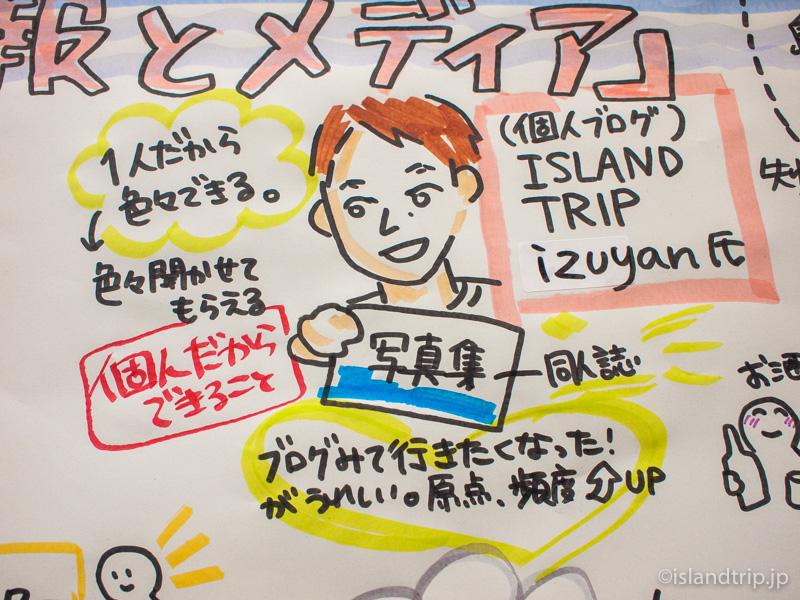 報とメディア」
1人だから
色々できる。
色々聞かせて
もらえる
個人だから
できること
(個人ブログ)
ISLAND
TRIP
izuyan氏
写真集
同人誌
ブログみて行きたくなった!
がうれしい。原点、頻度分UP
お酒
©islandtrip.jp